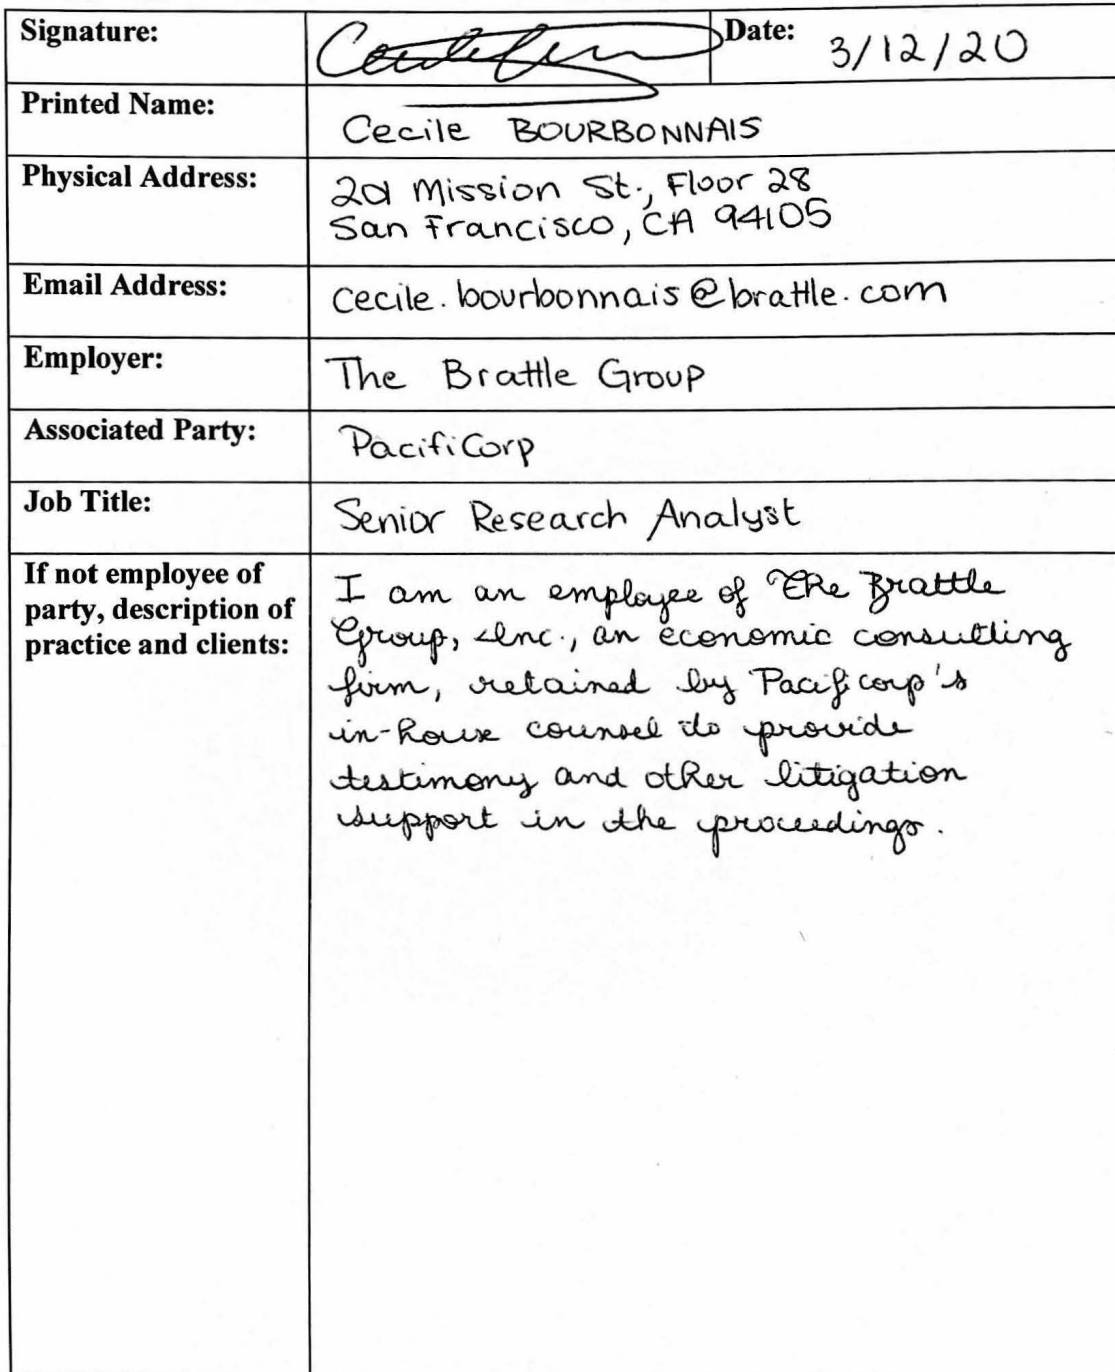 Signature: Date: 3/12/20
Printed Name: Cecile BOURBONNAIS
Physical Address: 201 Mission St., Floor 28
San Francisco, CA 94105
Email Address: cecile.bourbonnais@brattle.com
Employer: The Brattle Group
Associated Party: PacifiCorp
Job Title: Senior Research Analyst
If not employee of
party, description of
practice and clients:
I am an employee of The Brattle
Group, Inc., an economic consulting
firm, retained by Pacificorp's
in-house counsel to provide
testimony and other litigation
support in the proceedings.